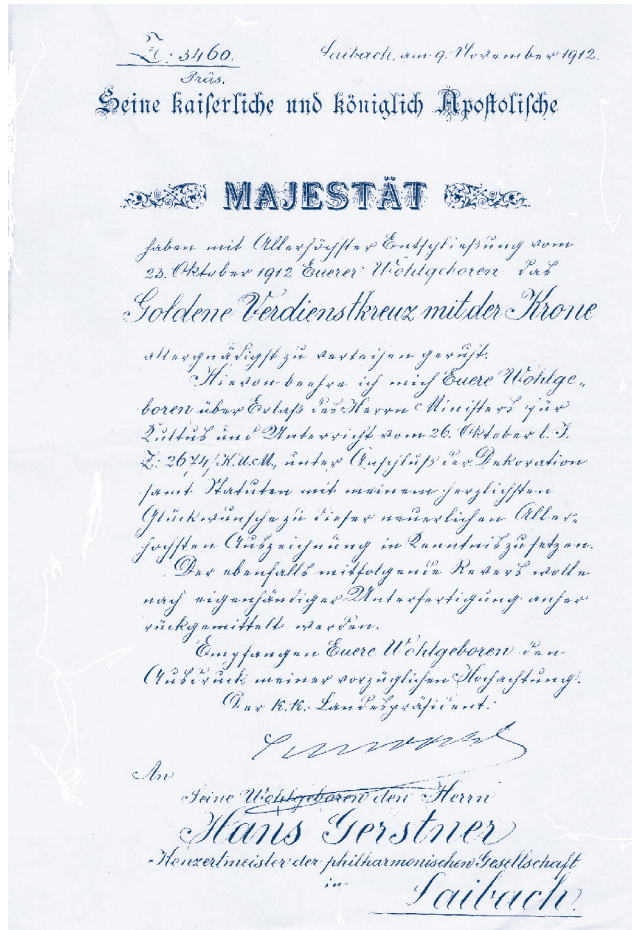 Z. 3460.
Präs.
Laibach, am 9. November 1912.
Seine kaiserliche und königlich Apostolische
MAJESTÄT
haben mit Allerhöchster Entschließung vom
23. Oktober 1912 Euerer Wohlgeboren das
Goldene Verdienstkreuz mit der Krone
allergnädigst zu verleihen geruht.
Hievon beehre ich mich Euere Wohlge-
boren über Erlaß des Herrn Ministers für
Kultus und Unterricht vom 26. Oktober l. J.
Z: 2674/K.U.M., unter Anschluß der Dekoration
samt Statuten mit meinem herzlichsten
Glückwunsche zu dieser neuerlichen Aller-
höchsten Auszeichnung in Kenntnis zu setzen.
Der ebenfalls mitfolgende Revers wolle
nach eigenhändiger Unterfertigung anher
rückgemittelt werden.
Empfangen Euere Wohlgeboren den
Ausdruck meiner vorzüglichen Hochachtung.
Der k.k. Landespräsident:
An
Seine Wohlgeboren den Herrn
Hans Gerstner
Konzertmeister der philharmonischen Gesellschaft
in
Laibach.